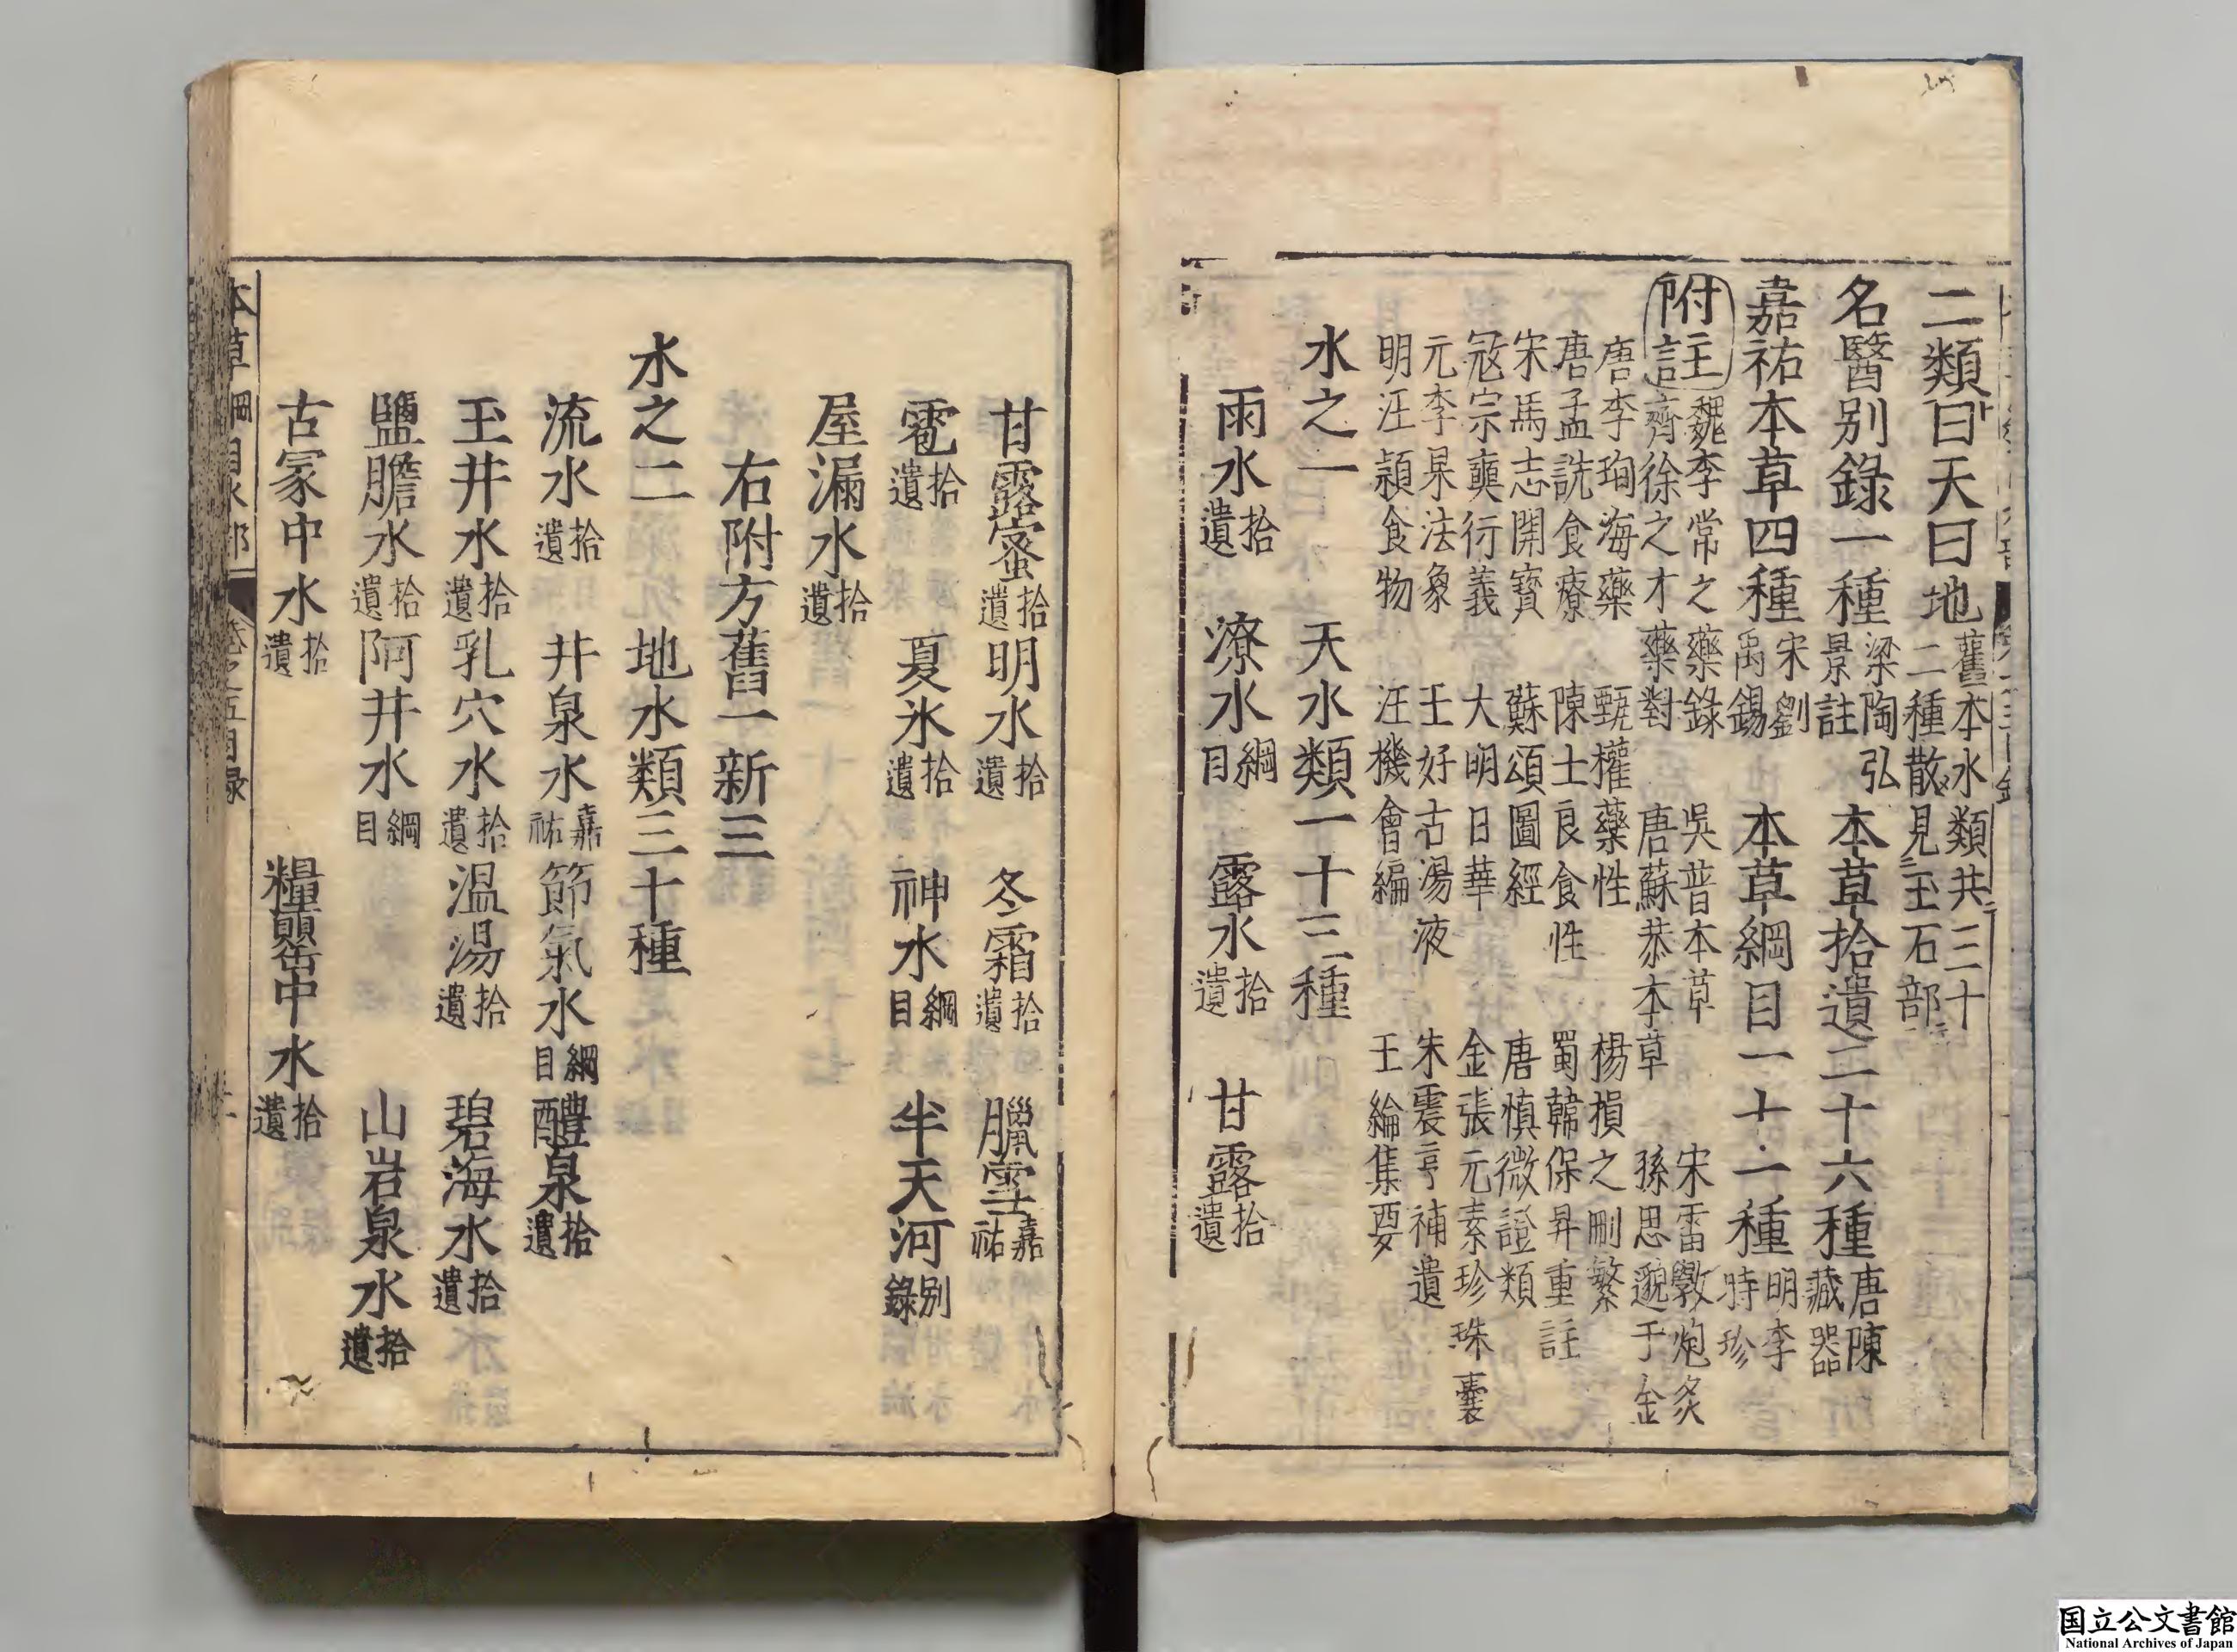 二類曰天曰地舊本水類共三十
二種散見玉石部
名醫别錄一種梁陶弘
景註
本草拾遺二十六種唐陳
藏器
嘉祐本草四種宋劉
禹錫
本草綱目一十一種明李
時珍
附註
魏李當之藥錄
吳普本草
宋雷斆炮炙
齊徐之才藥對
唐蘇恭本草
孫思邈千金
唐李珣海藥
甄權藥性
楊損之刪繁
唐孟詵食療
陳士良食性
蜀韓保昇重註
宋馬志開寶
蘇頌圖經
唐慎微證類
寇宗奭衍義
大明日華
金張元素珍珠囊
元李杲法象
王好古湯液
朱震亨補遺
明汪穎食物
汪機會編
王綸集要
水之一　天水類一十三種
雨水拾遺　潦水綱目　露水拾遺　甘露拾遺
甘露蜜拾遺　明水拾遺　冬霜拾遺　臘雪嘉祐
雹拾遺　夏氷拾遺　神水綱目　半天河别錄
屋漏水拾遺
右附方舊一新三
水之二　地水類三十種
流水拾遺　井泉水嘉祐　節氣水綱目　醴泉拾遺
玉井水拾遺　乳穴水拾遺　温湯拾遺　碧海水拾遺
鹽膽水拾遺　阿井水綱目　山岩泉水拾遺
古冢中水拾遺　糧罌中水拾遺
本草綱目水部　卷之五目錄
国立公文書館
National Archives of Japan